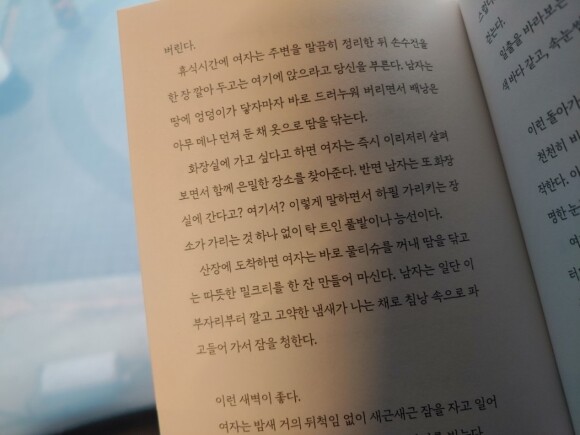 버린다.
휴식시간에 여자는 주변을 말끔히 정리한 뒤 손수건을
한 장 깔아 두고는 여기에 앉으라고 당신을 부른다. 남자는
땅에 엉덩이가 닿자마자 바로 드러누워 버리면서 배낭은
아무 데나 던져 둔 채 옷으로 땀을 닦는다.
화장실에 가고 싶다고 하면 여자는 즉시 이리저리 살펴
보면서 함께 은밀한 장소를 찾아준다. 반면 남자는 또 화장
실에 간다고? 여기서? 이렇게 말하면서 하필 가리키는 장
소가 가리는 것 하나 없이 탁 트인 풀밭이나 능선이다.
산장에 도착하면 여자는 바로 물티슈를 꺼내 땀을 닦고
는 따뜻한 밀크티를 한 잔 만들어 마신다. 남자는 일단 이
부자리부터 깔고 고약한 냄새가 나는 채로 침낭 속으로 파
고들어 가서 잠을 청한다.
이런 새벽이 좋다.
여자는 밤새 거의 뒤척임 없이 새근새근 잠을 자고 일어
뜬다.
일출을 바라보는
새 바다 같고, 속눈썹
이런 돌아가
천천히 바
탁한다. 아
명한 눈
여
터